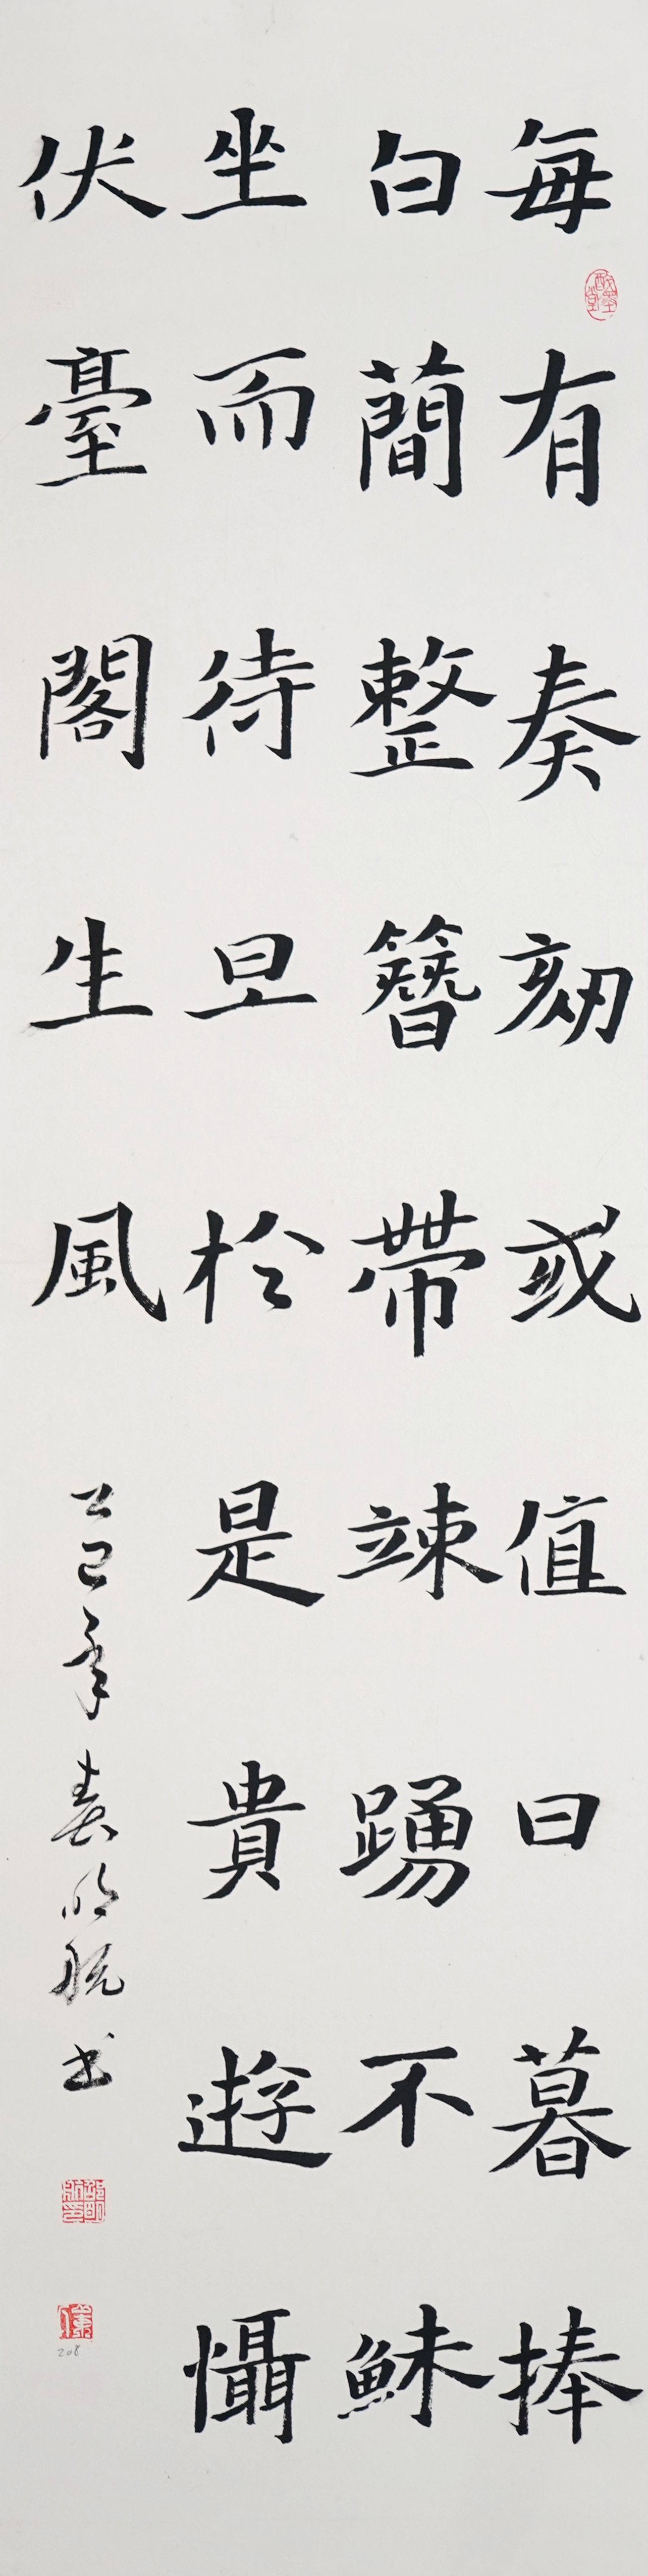 每有奏劾或值日暮捧
白蕑整簪帶竦踴不鮇
坐而待旦於是貴遊懾
伏臺閣生風
乙巳年春明航书
208